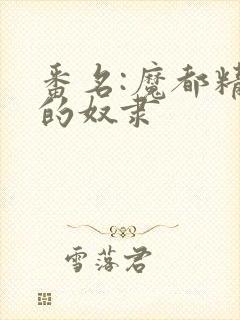 番名:魔都精
的奴隶
雪落君